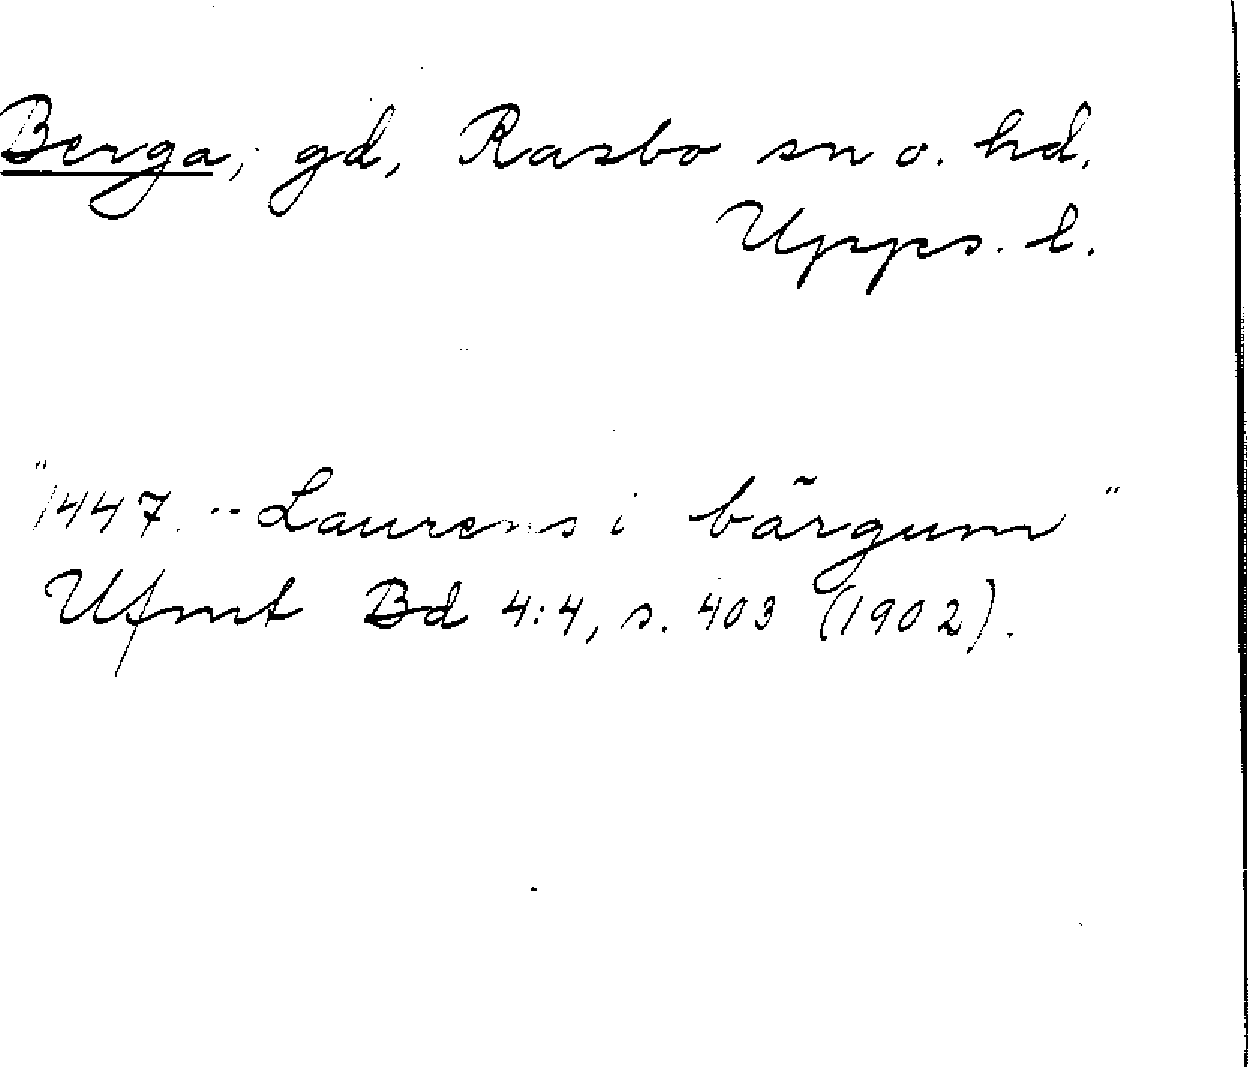 Berga, gd, Rasbo sn o. hd.
Upps. l.
"1447. -- Laurens i bärgum"
Ufmt Bd 4:4, s. 403 (1902).